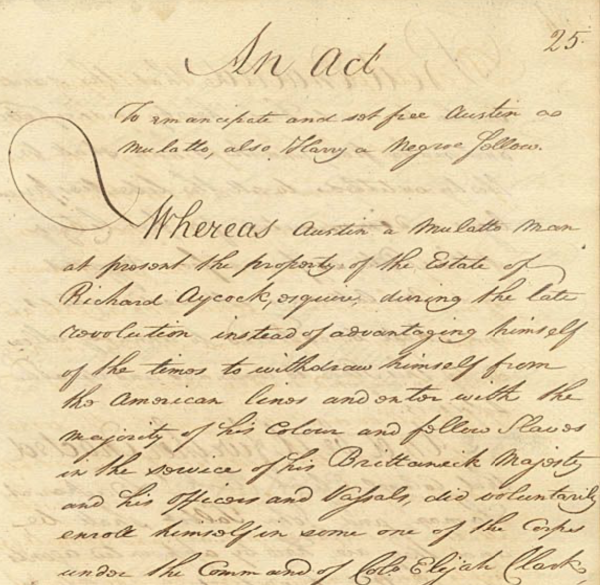 25.
An Act
To emancipate and set free Austin a
Mulatto, also Harry a Negroe fellow.
Whereas Austin a Mulatto Man
at present the property of the Estate of
Richard Aycock, esquire, during the late
revolution instead of advantaging himself
of the times to withdraw himself from
the American lines and enter with the
majority of his Colour and fellow Slaves
in the service of his Brittaneck Majesty
and his officers and Vassals, did voluntarily
enroll himself in some one of the Corps
under the Command of Colo. Elijah Clark,